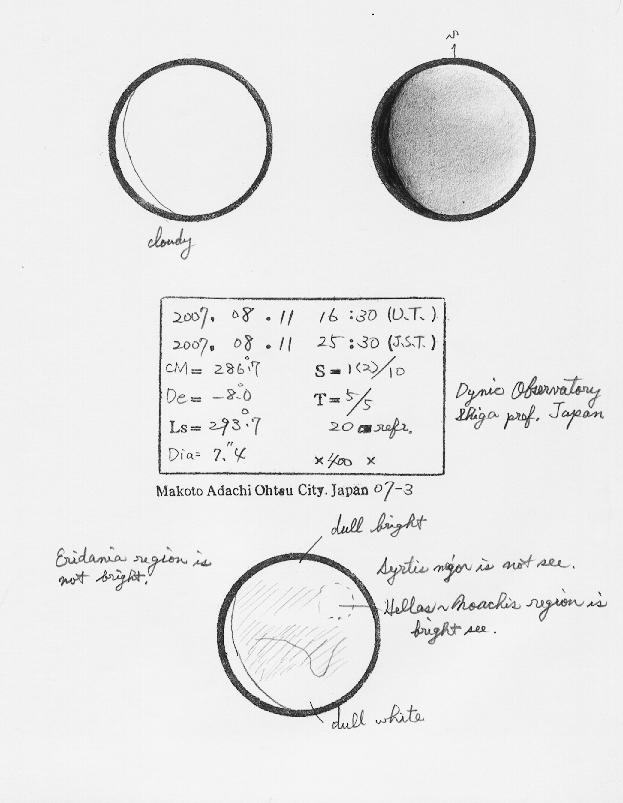 N
cloudy
2007. 08 . 11 16 : 30 (U.T.)
2007. 08 . 11 25 : 30 (J.S.T.)
CM= 286.°7 S = 1(2)/10
De = -8.°0 T = 5/5
Ls = 293.°7 20 cm refr.
Dia= 7."4 ×400 ×
Dynic Observatory
Shiga prof. Japan
Makoto Adachi Ohtsu City. Japan 07-3
dull bright
Eridania region is
not bright.
Syrtis mejor is not see.
Hellas ~ Noachis region is
bright see.
dull white